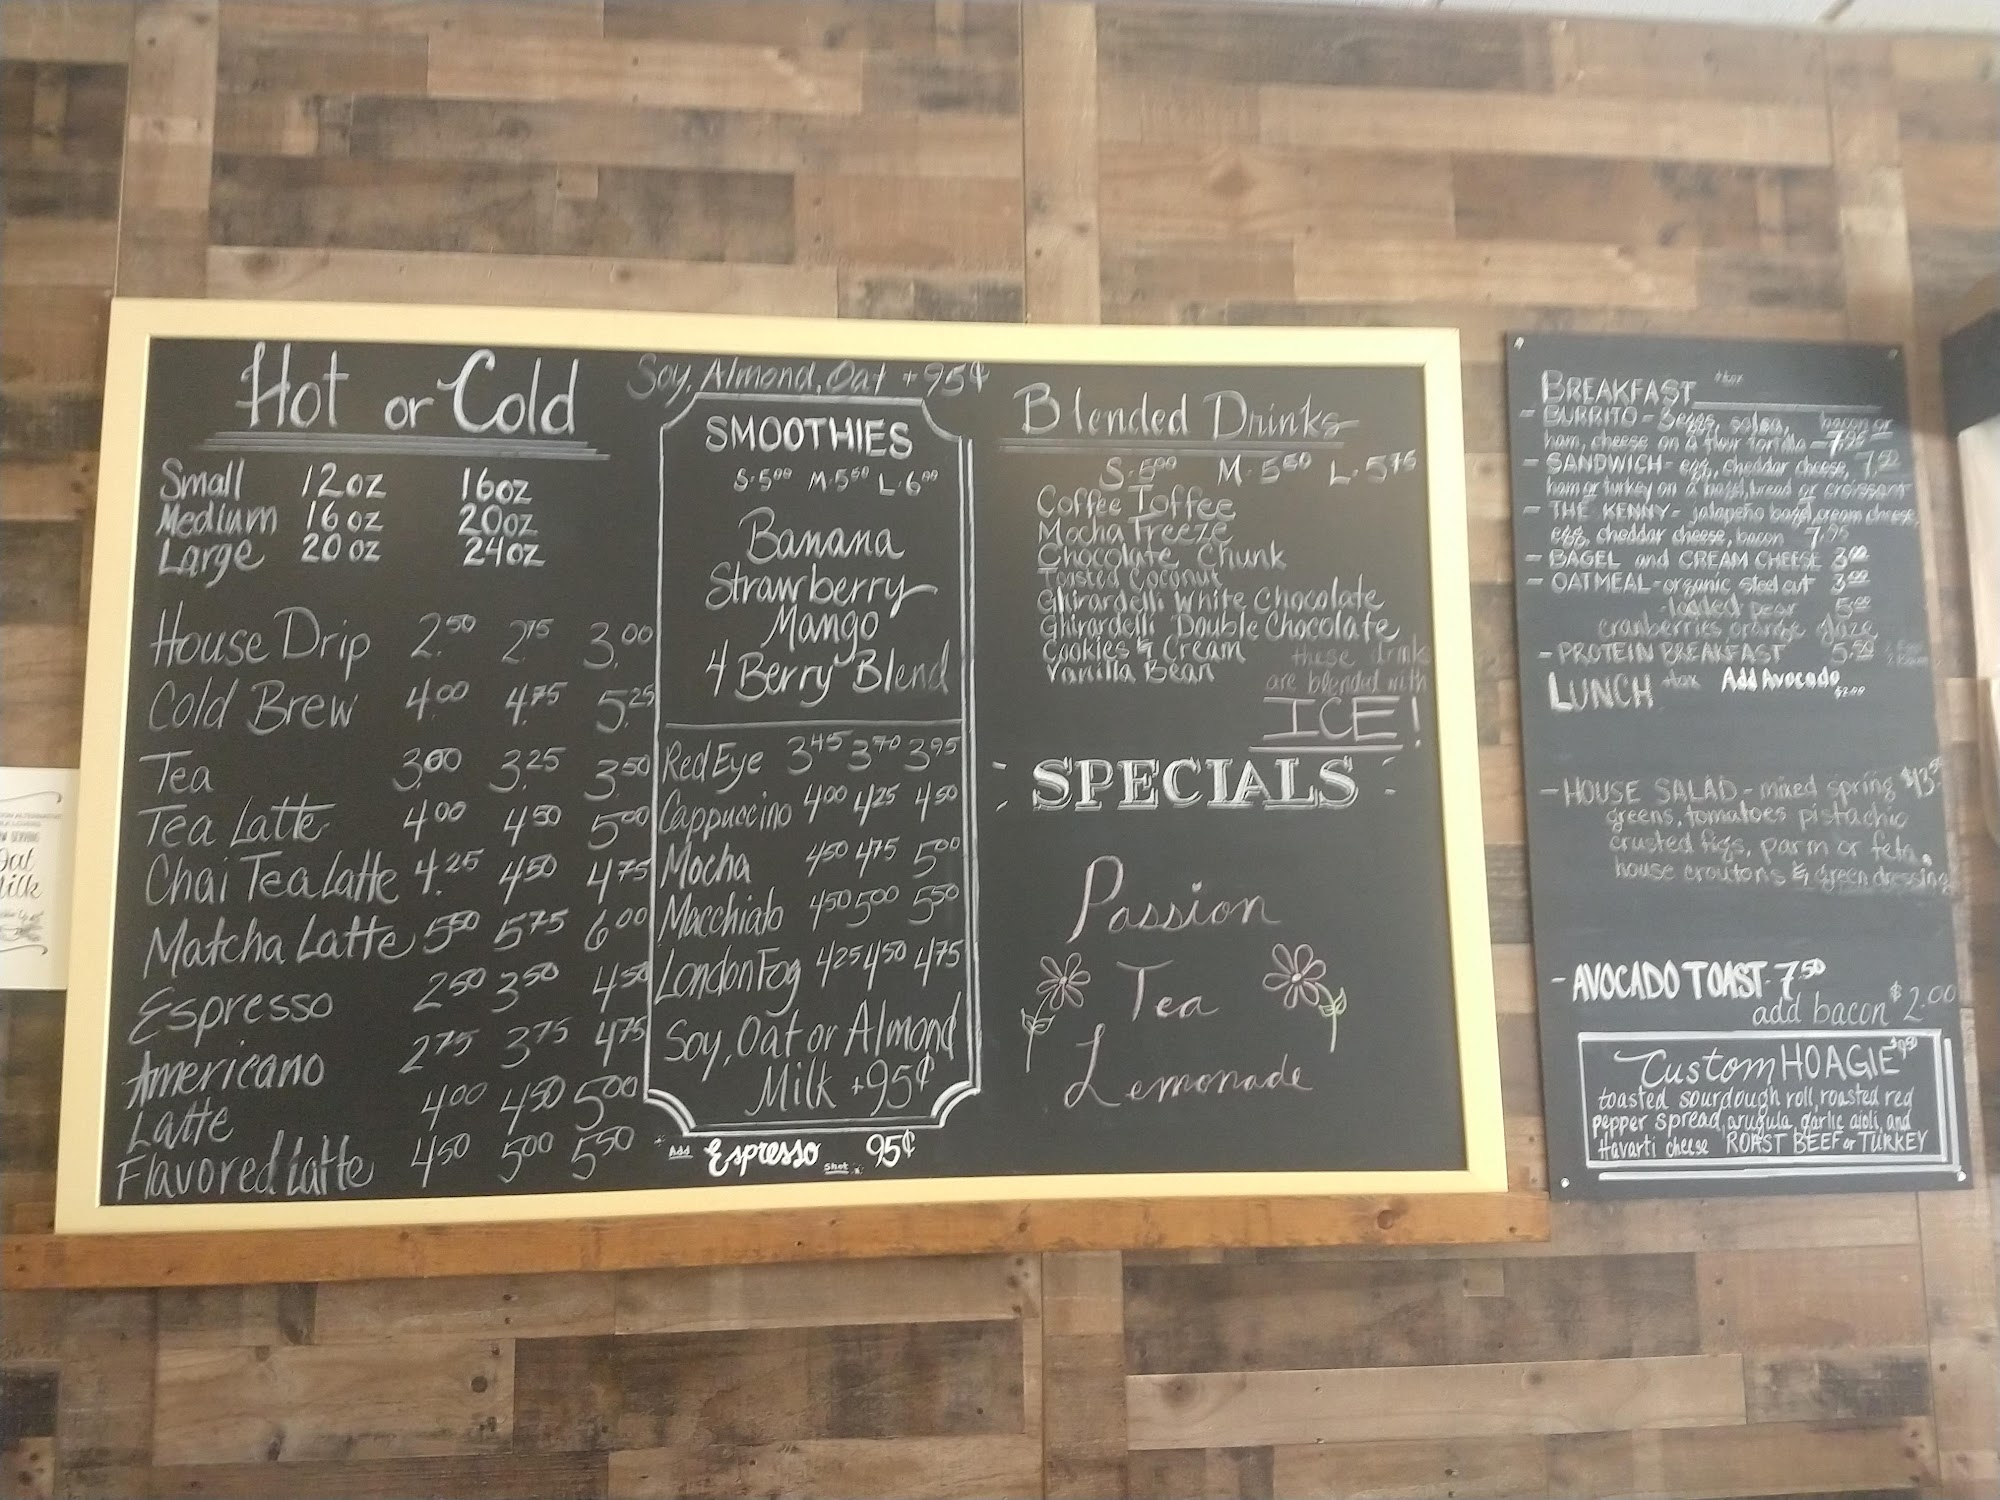 Hot or Cold
Small 12oz 16oz
Medium 16oz 20oz
Large 20oz 24oz
House Drip 2.50 2.75 3.00
Cold Brew 4.00 4.75 5.25
Tea 3.00 3.25 3.50
Tea Latte 4.00 4.50 5.00
Chai Tea Latte 4.25 4.50 4.75
Matcha Latte 5.50 5.75 6.00
Espresso 2.50 3.50 4.50
Americano 2.75 3.75 4.75
Latte 4.00 4.50 5.00
Flavored Latte 4.50 5.00 5.50
Soy, Almond, Oat +95¢
SMOOTHIES
S·5.00 M·5.50 L·6.00
Banana
Strawberry
Mango
4 Berry Blend
Red Eye 3.45 3.70 3.95
Cappuccino 4.00 4.25 4.50
Mocha 4.50 4.75 5.00
Macchiato 4.50 5.00 5.50
London Fog 4.25 4.50 4.75
Soy, Oat or Almond
Milk +95¢
Add Espresso Shot 95¢
Blended Drinks
S·5.00 M·5.50 L·5.75
Coffee Toffee
Mocha Freeze
Chocolate Chunk
Toasted Coconut
Ghirardelli White Chocolate
Ghirardelli Double Chocolate
Cookies & Cream
Vanilla Bean
these drink
are blended with
ICE!
SPECIALS
Passion
Tea
Lemonade
BREAKFAST +tax
- BURRITO - eggs, salsa, bacon or
ham, cheese on a flour tortilla - 7.95
- SANDWICH - egg, cheddar cheese, 7.50
ham or turkey on a bagel, bread or croissant
- THE KENNY - jalapeño bagel, cream cheese,
egg, cheddar cheese, bacon 7.95
- BAGEL and CREAM CHEESE 3.00
- OATMEAL - organic steel cut 3.00
- loaded pear 5.00
cranberries orange glaze
- PROTEIN BREAKFAST 5.50
LUNCH +tax Add Avocado
$2.00
- HOUSE SALAD - mixed spring
greens, tomatoes pistachio
crusted figs, parm or feta,
house croutons & green dressing
- AVOCADO TOAST - 7.50
add bacon $2.00
Custom HOAGIE $9.50
toasted sourdough roll, roasted red
pepper spread, arugula, garlic aioli, and
Havarti cheese ROAST BEEF or TURKEY
Oat
Milk